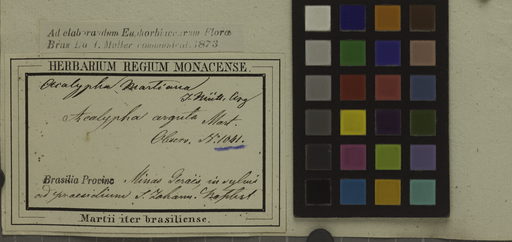 Ad elaborandum Euphorbiacearum Florae
Bras. Dr. J. Müller communicat. 1873
HERBARIUM REGIUM MONACENSE.
Acalypha Martiana
J. Müll. Arg
Acalypha arguta Mart.
Observ. N. 1041.
Brasilia Provinc Minas Geraës, in sylvis
ad praesidium S. Johann. Baptist
Martii iter brasiliense.